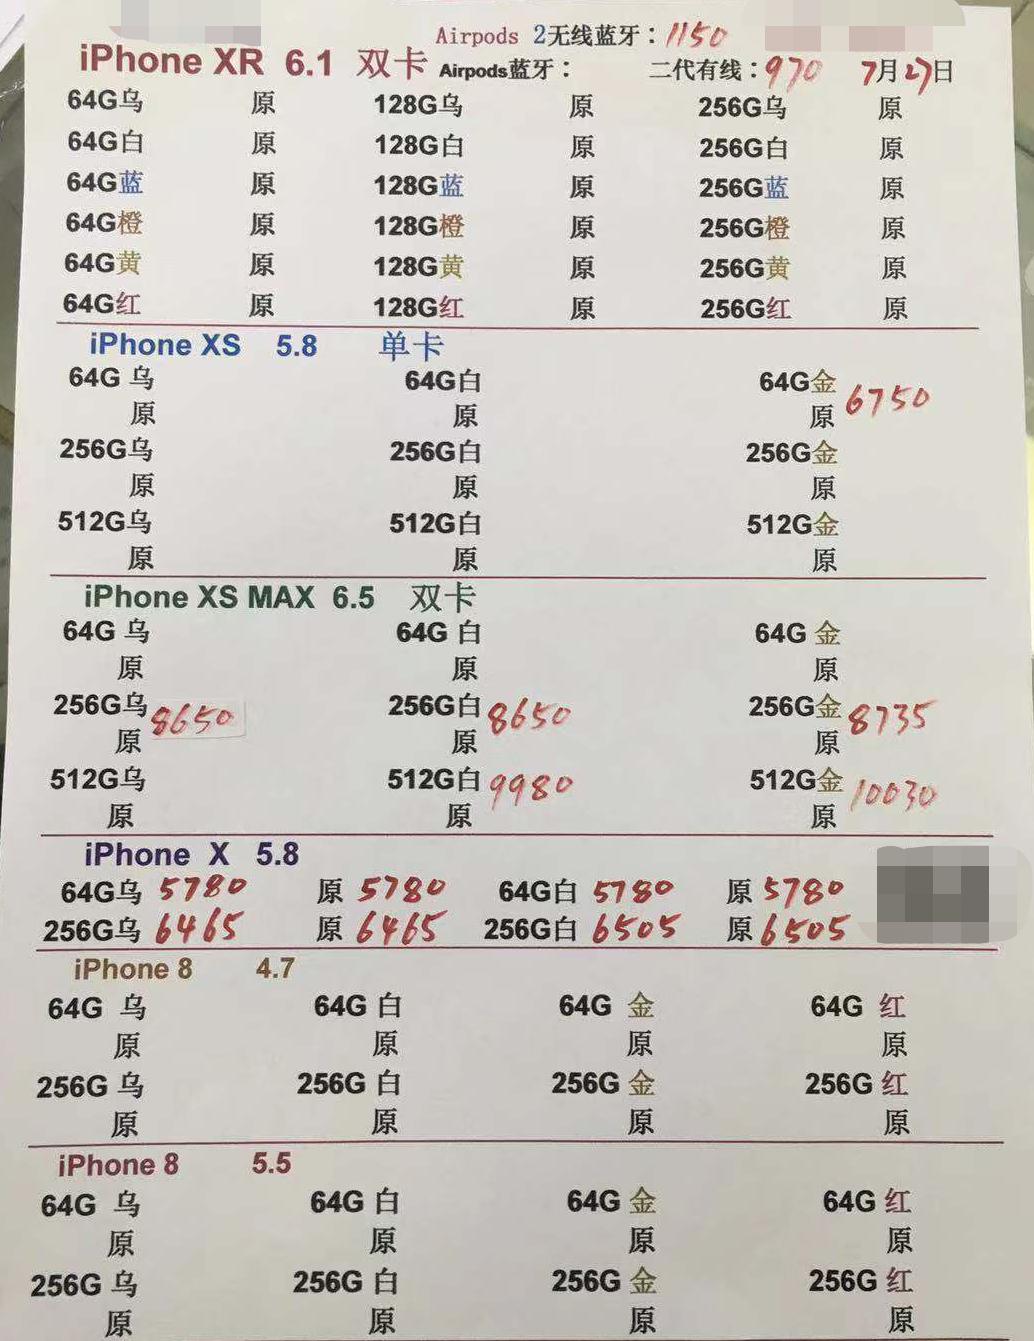 Airpods 2无线蓝牙：1150
iPhone XR 6.1 双卡 Airpods蓝牙： 二代有线：970 7月27日
64G乌 原 128G乌 原 256G乌 原
64G白 原 128G白 原 256G白 原
64G蓝 原 128G蓝 原 256G蓝 原
64G橙 原 128G橙 原 256G橙 原
64G黄 原 128G黄 原 256G黄 原
64G红 原 128G红 原 256G红 原
iPhone XS 5.8 单卡
64G 乌 64G白 64G金 6750
原 原 原
256G乌 256G白 256G金
原 原 原
512G乌 512G白 512G金
原 原 原
iPhone XS MAX 6.5 双卡
64G 乌 64G 白 64G 金
原 原 原
256G乌 8650 256G白 8650 256G金 8735
原 原 原
512G乌 512G白 9980 512G金 10030
原 原 原
iPhone X 5.8
64G乌 5780 原 5780 64G白 5780 原 5780
256G乌 6465 原 6465 256G白 6505 原 6505
iPhone 8 4.7
64G 乌 64G 白 64G 金 64G 红
原 原 原 原
256G 乌 256G 白 256G 金 256G 红
原 原 原 原
iPhone 8 5.5
64G 乌 64G 白 64G 金 64G 红
原 原 原 原
256G 乌 256G 白 256G 金 256G 红
原 原 原 原